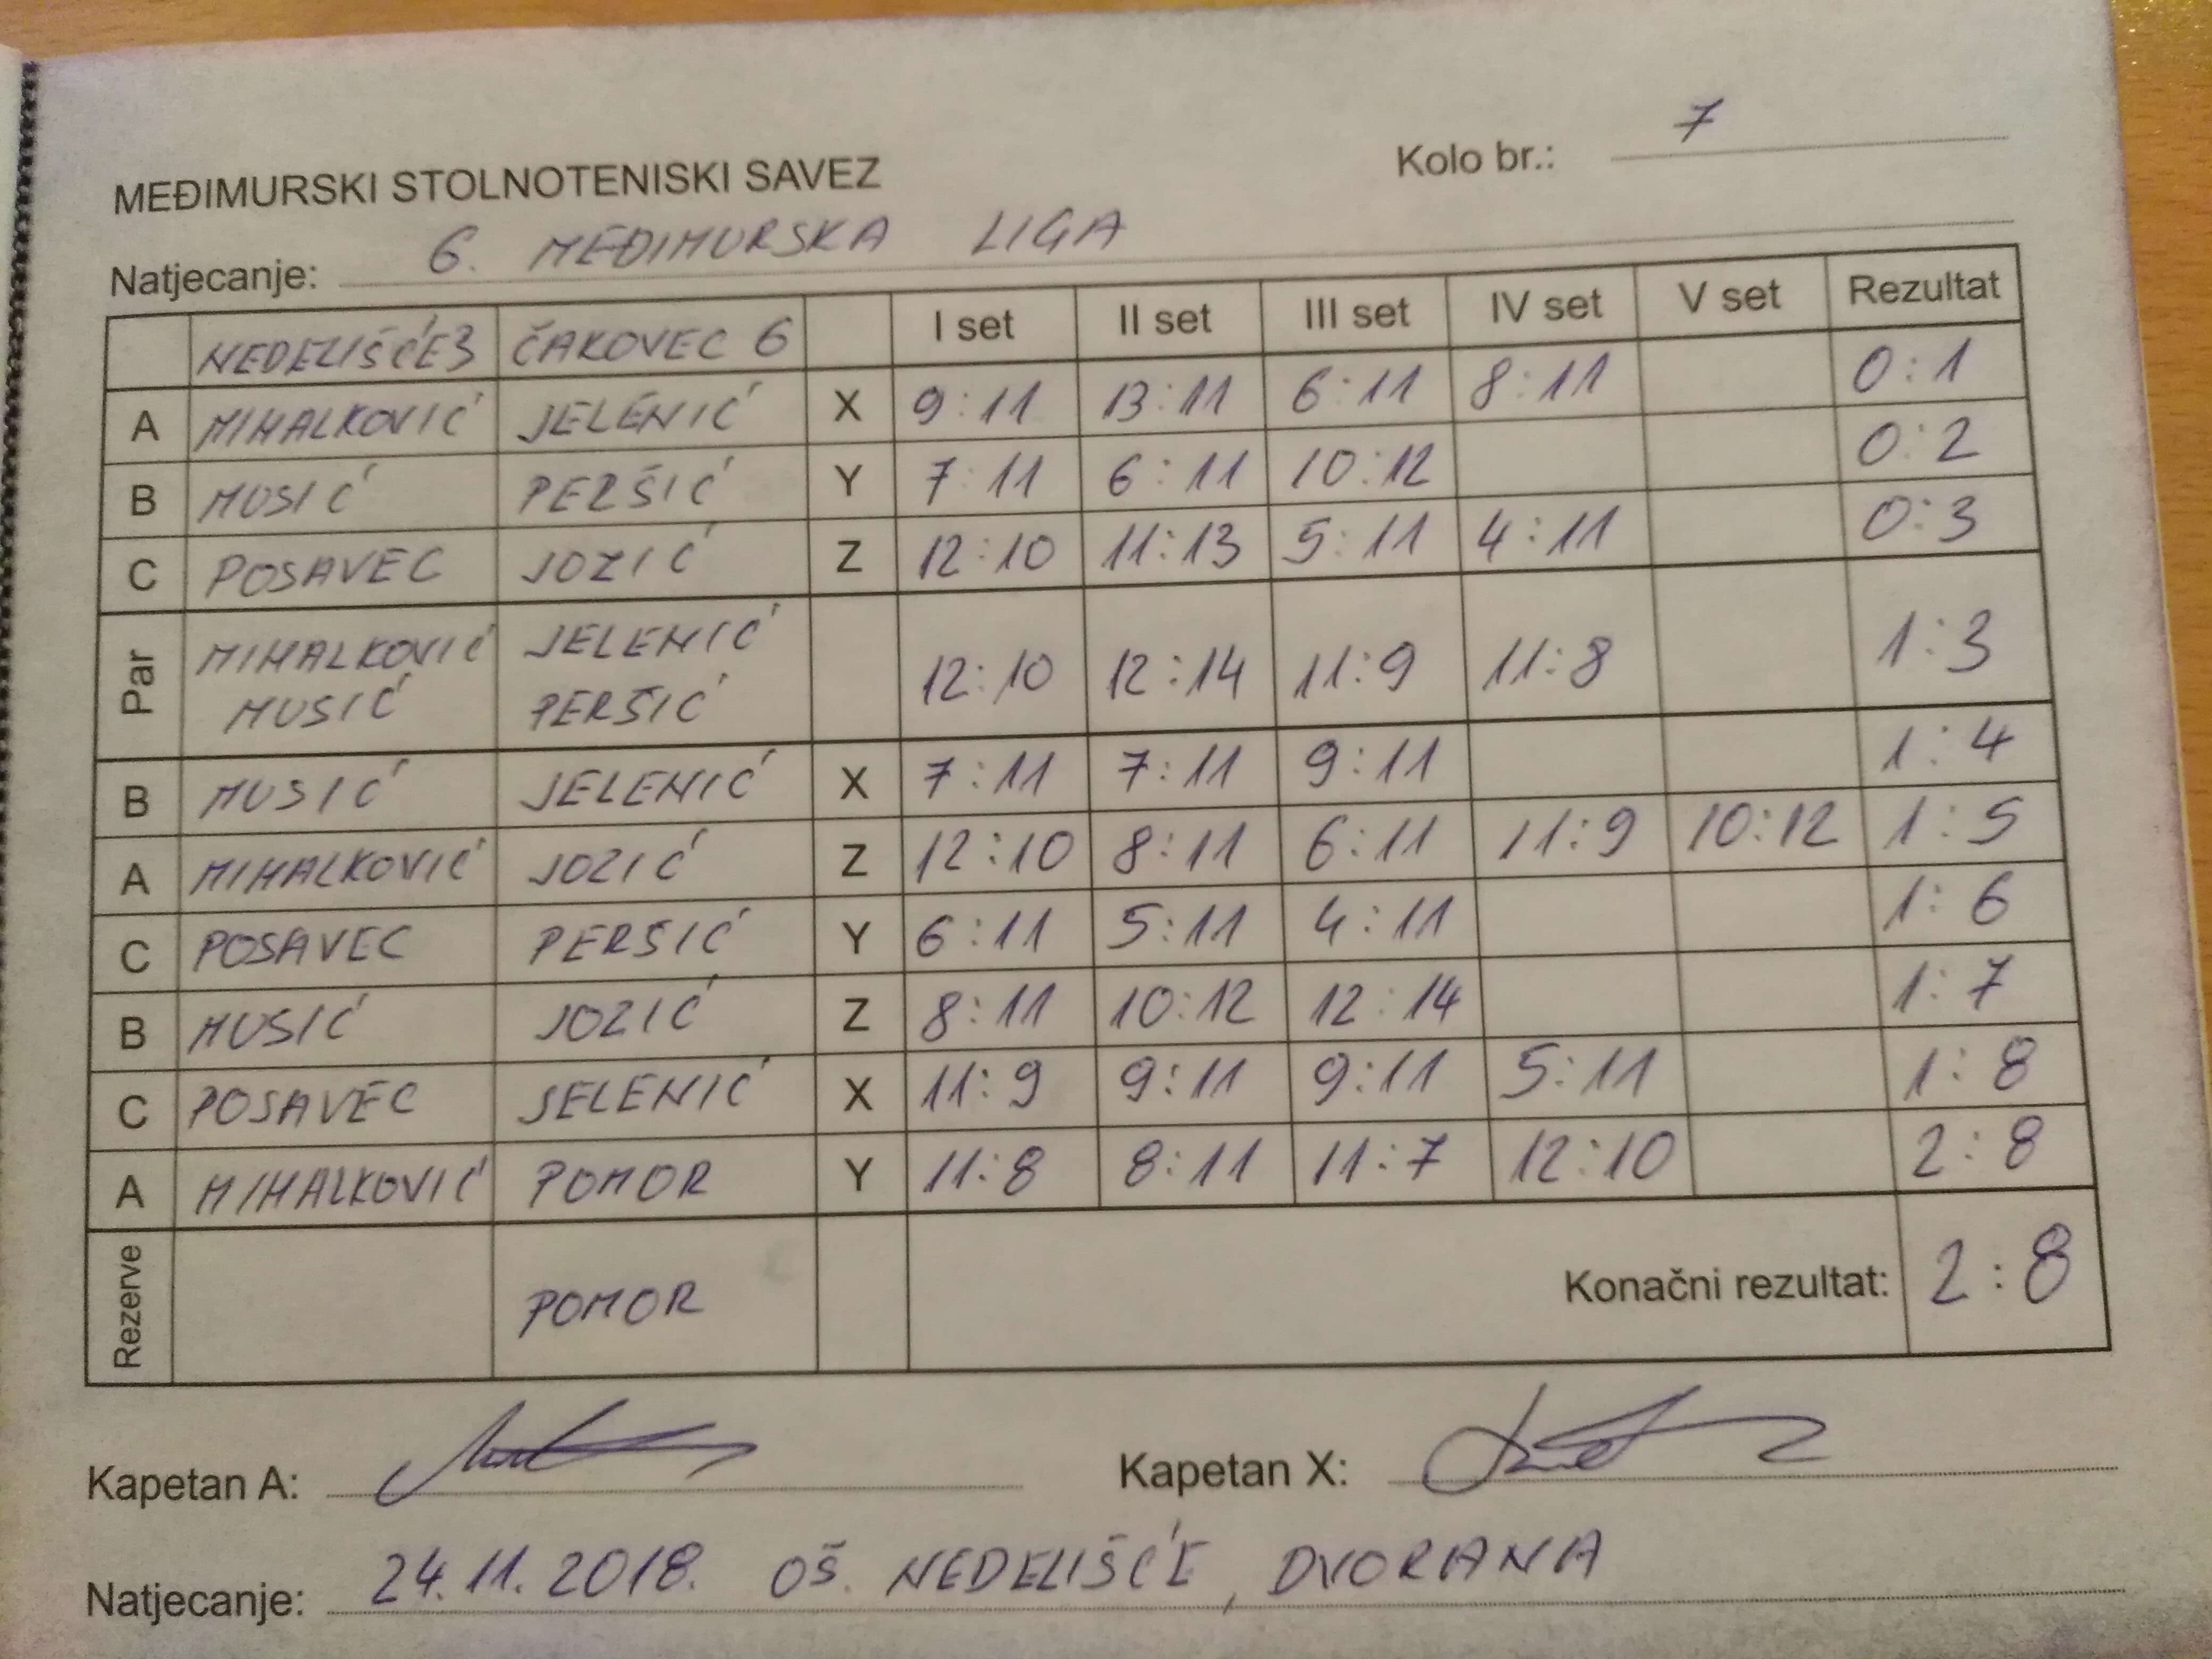 Kolo br.: 7
MEĐIMURSKI STOLNOTENISKI SAVEZ
Natjecanje: 6. MEĐIMURSKA LIGA
NEDELIŠĆE 3 ČAKOVEC 6 I set II set III set IV set V set Rezultat
A MIHALKOVIĆ JELENIĆ X 9:11 13:11 6:11 8:11 0:1
B MUSIĆ PERŠIĆ Y 7:11 6:11 10:12 0:2
C POSAVEC JOZIĆ Z 12:10 11:13 5:11 4:11 0:3
Par MIHALKOVIĆ JELENIĆ 12:10 12:14 11:9 11:8 1:3
MUSIĆ PERŠIĆ
B MUSIĆ JELENIĆ X 7:11 7:11 9:11 1:4
A MIHALKOVIĆ JOZIĆ Z 12:10 8:11 6:11 11:9 10:12 1:5
C POSAVEC PERSIĆ Y 6:11 5:11 4:11 1:6
B MUSIĆ JOZIĆ Z 8:11 10:12 12:14 1:7
C POSAVEC JELENIĆ X 11:9 9:11 9:11 5:11 1:8
A MIHALKOVIĆ POMOR Y 11:8 8:11 11:7 12:10 2:8
Rezerve POMOR Konačni rezultat: 2:8
Kapetan A: Kapetan X:
Natjecanje: 24.11.2018. OŠ. NEDELIŠĆE, DVORANA